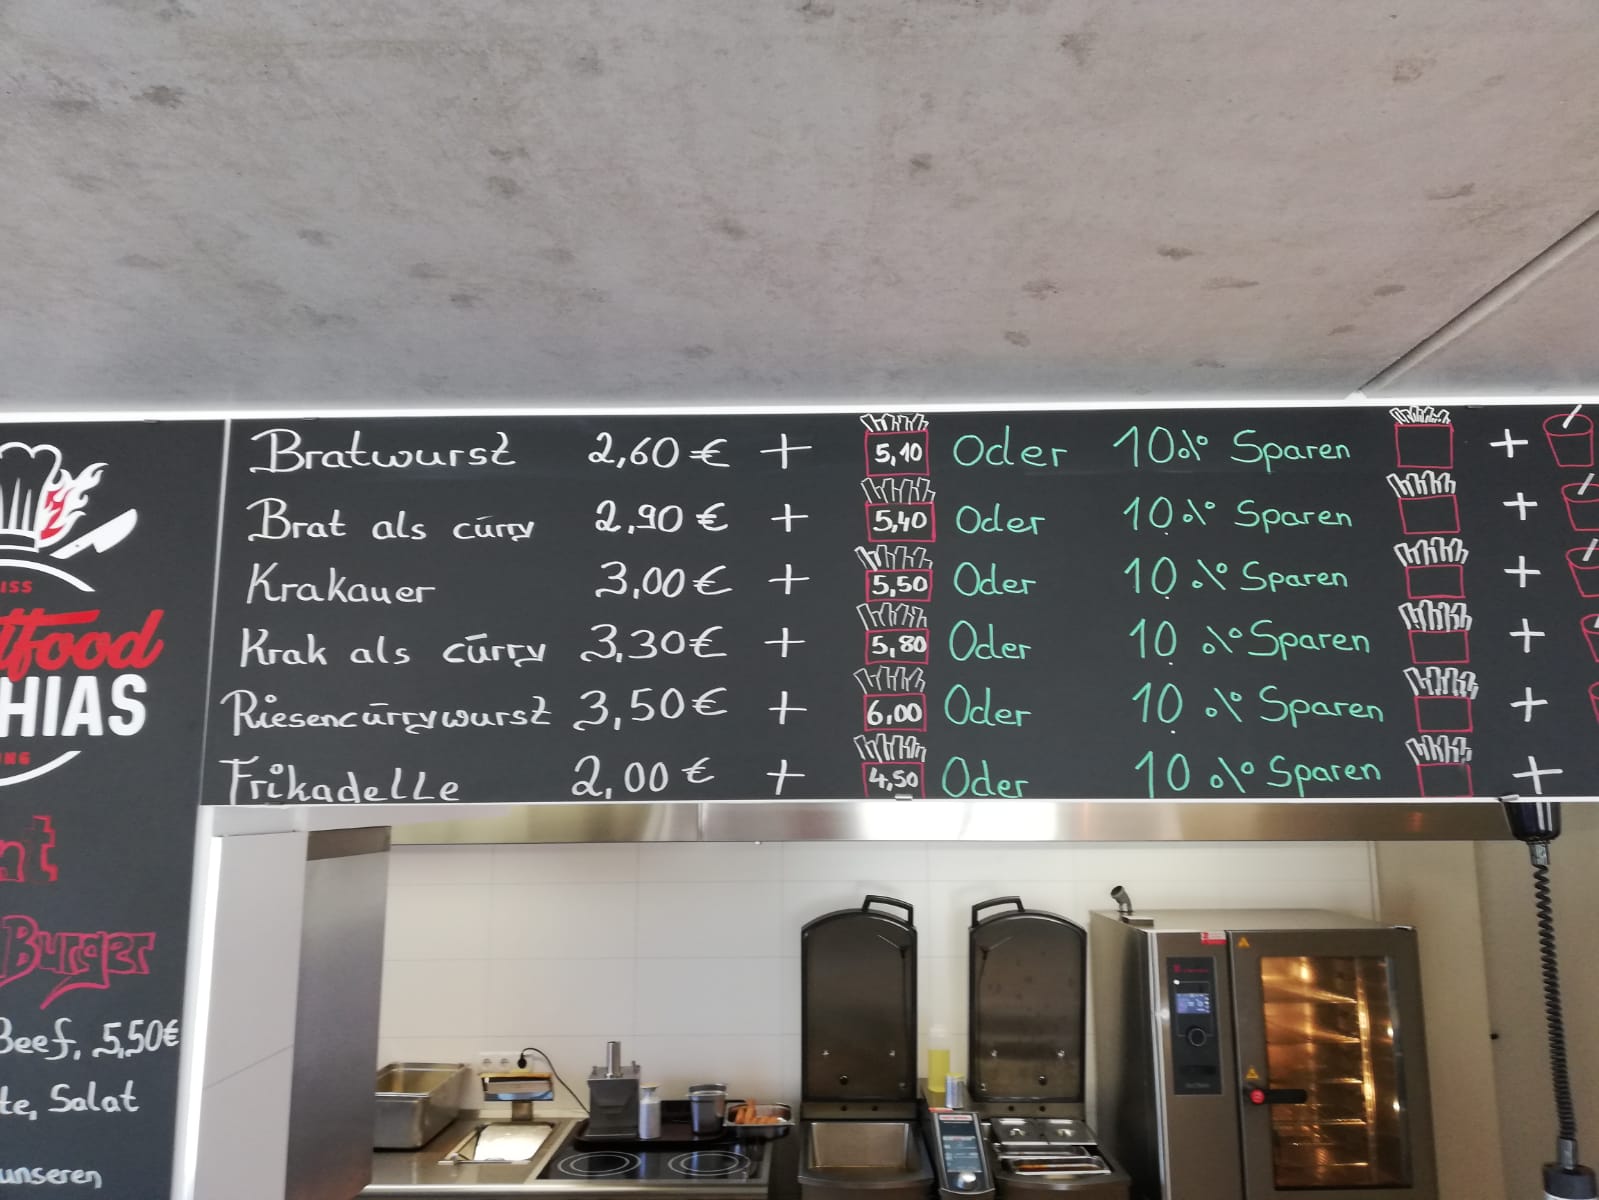 Bratwurst 2,60 € + 5,10 Oder 10% Sparen +
Brat als cürry 2,90 € + 5,40 Oder 10% Sparen +
Krakauer 3,00 € + 5,50 Oder 10% Sparen +
Krak als cürry 3,30 € + 5,80 Oder 10% Sparen +
Riesencürrywurst 3,50 € + 6,00 Oder 10% Sparen +
Frikadelle 2,00 € + 4,50 Oder 10% Sparen +
ISS
tfood
HIAS
NG
nt
Burger
Beef, 5,50€
te, Salat
unseren